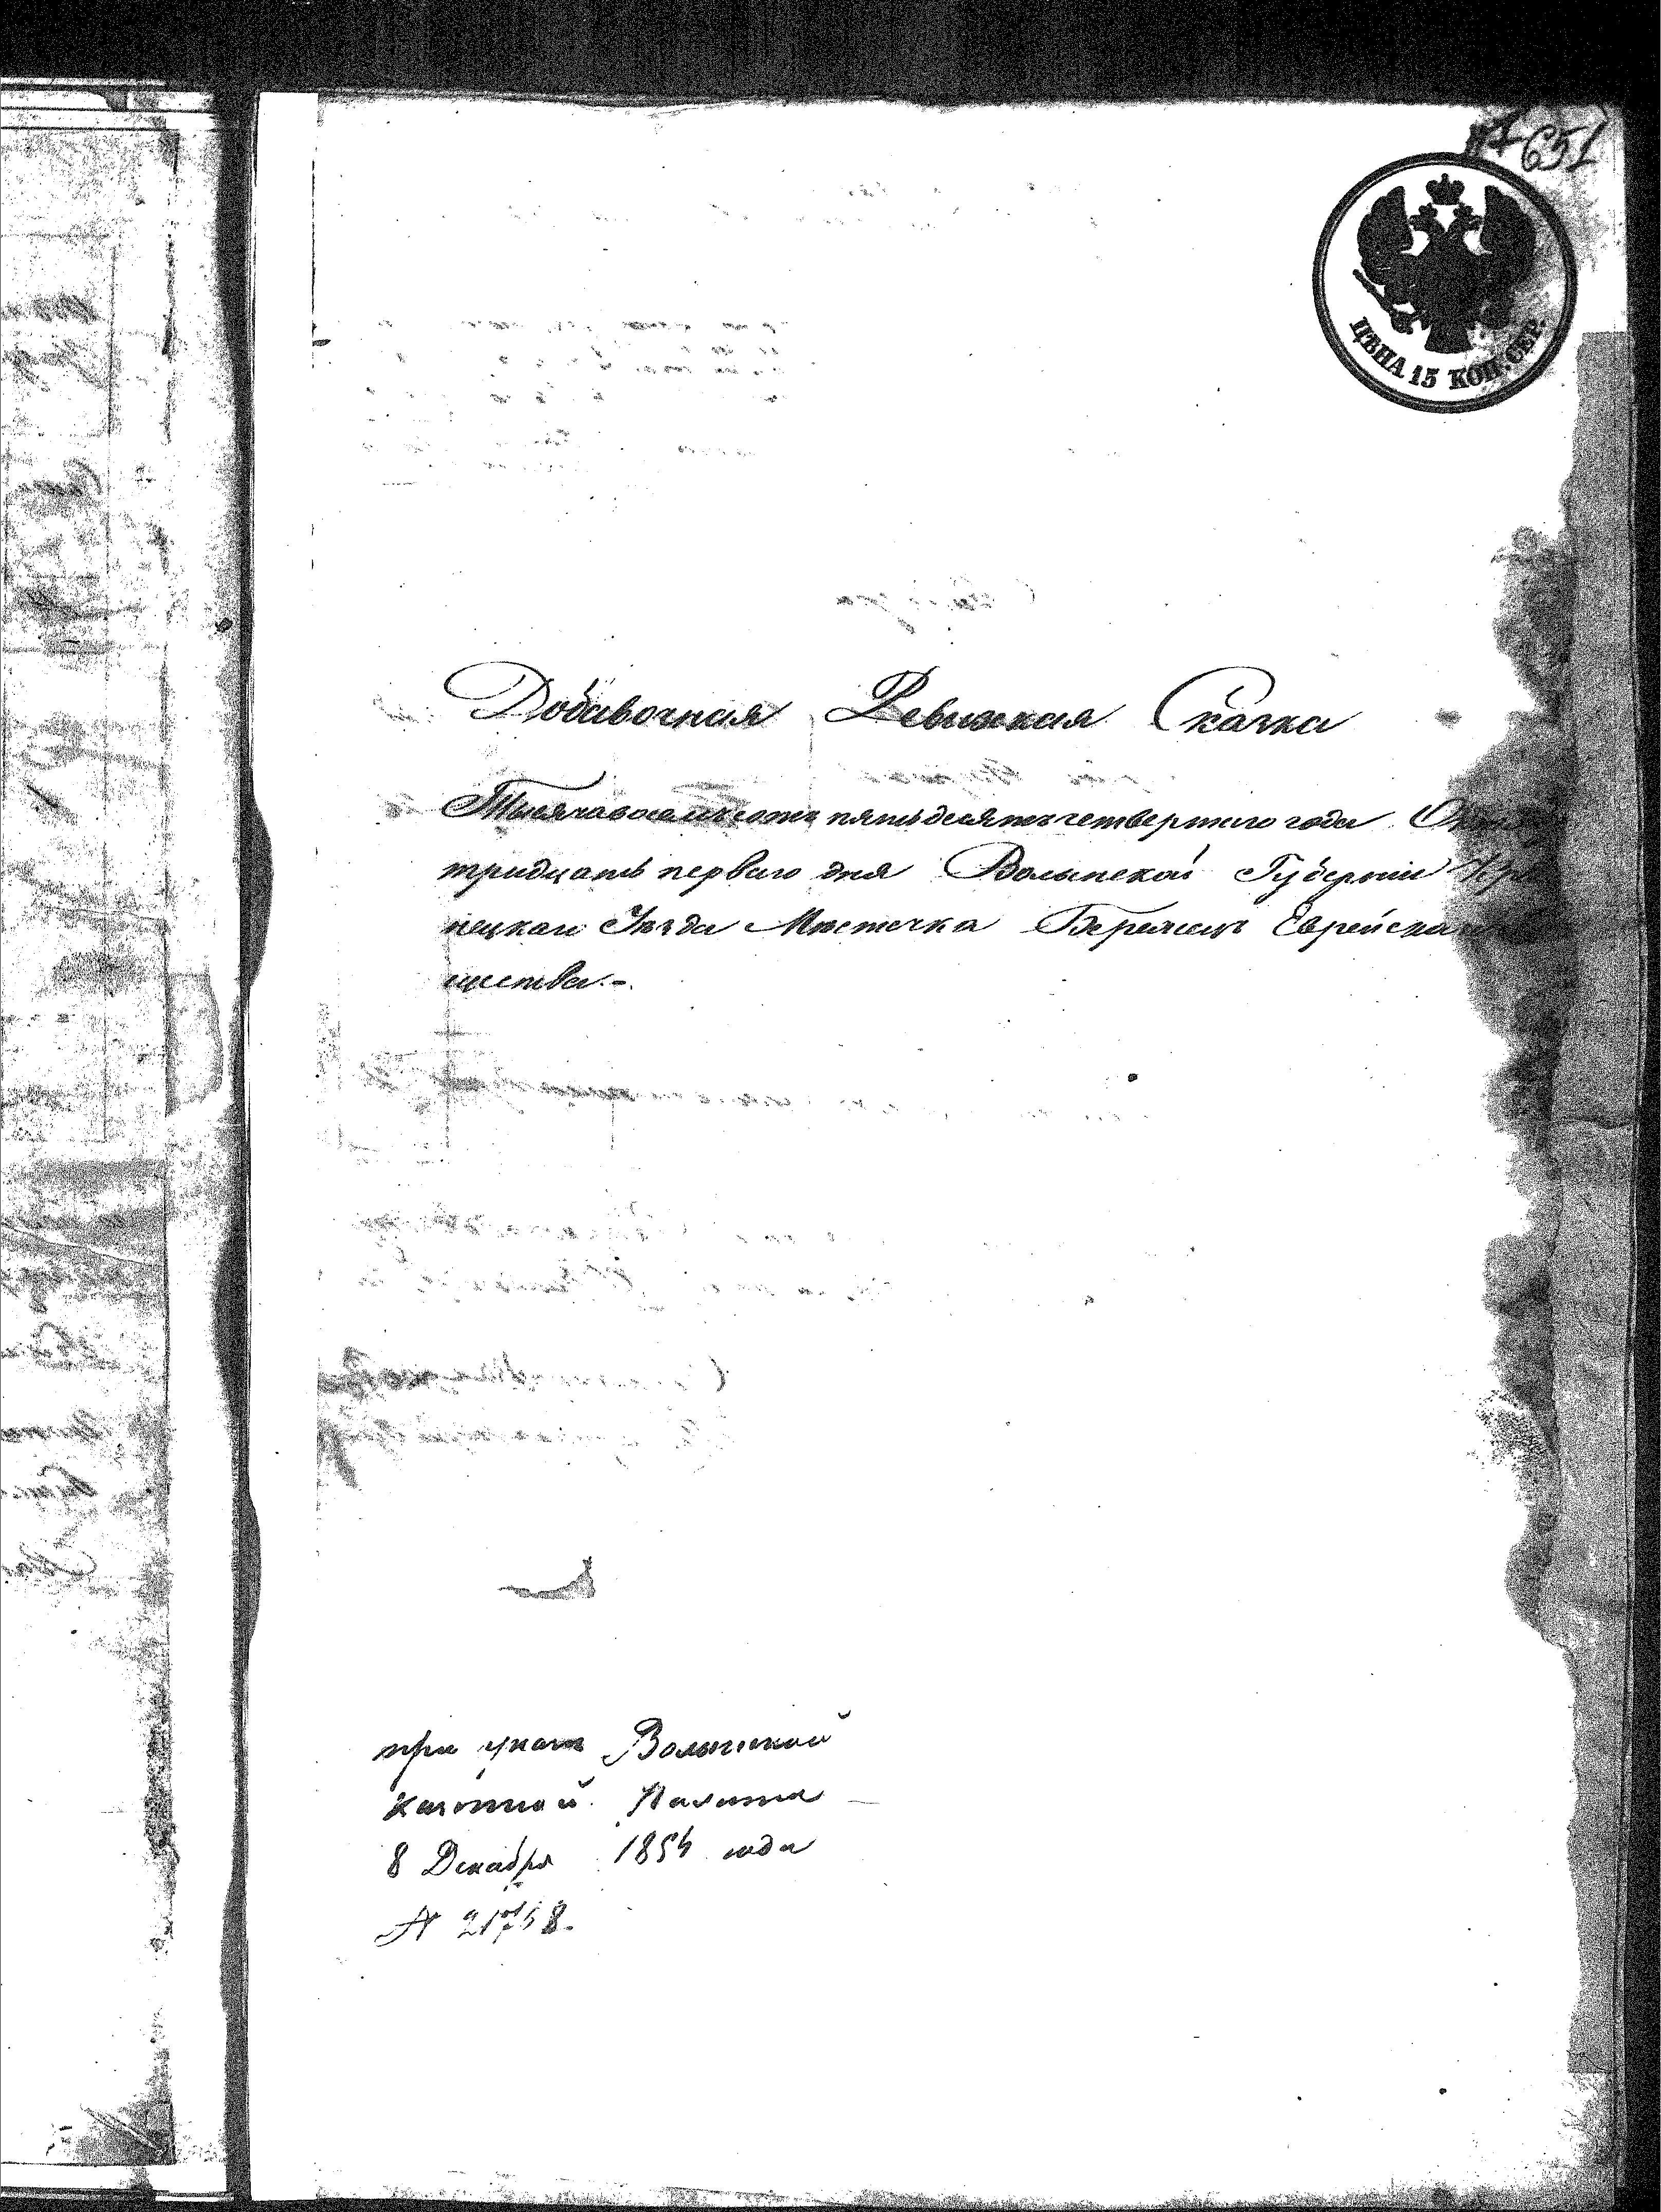 651
ЦѢНА 15 КОП. СЕР.
Добавочная Ревизская Сказка
Тысяча восемьсотъ пятьдесятъ четвертаго года
тридцать перваго дня Волынской Губерніи
нецкаго Уѣзда Мѣстечка Бережецъ Еврейска
щества.-
при указѣ Волынской
Казенной Палаты
8 Декабря 1854 года
№ 21758.